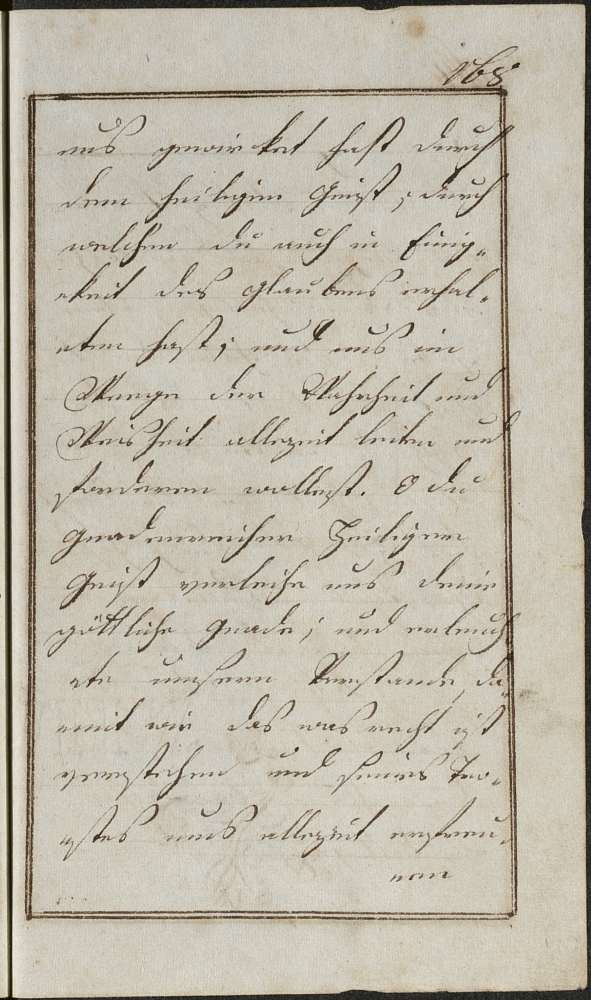 168
uns gewircket hast durch
dem heiligen Geist; durch
welchen du auch in Einig„
„keit des glaubens erhal„
„ten hast; und uns im
Weege der Wahrheit und
Weisheit allezeit leiten und
forderen wollest. O du
gnadenreicher Heiligere
Geist verleihe uns deine
göttliche gnade; und erleuch
„te unseren Verstande, da„
„mit wir das was recht ist
verstehen und seines Tro„
„stes uns allezeit erfreu„